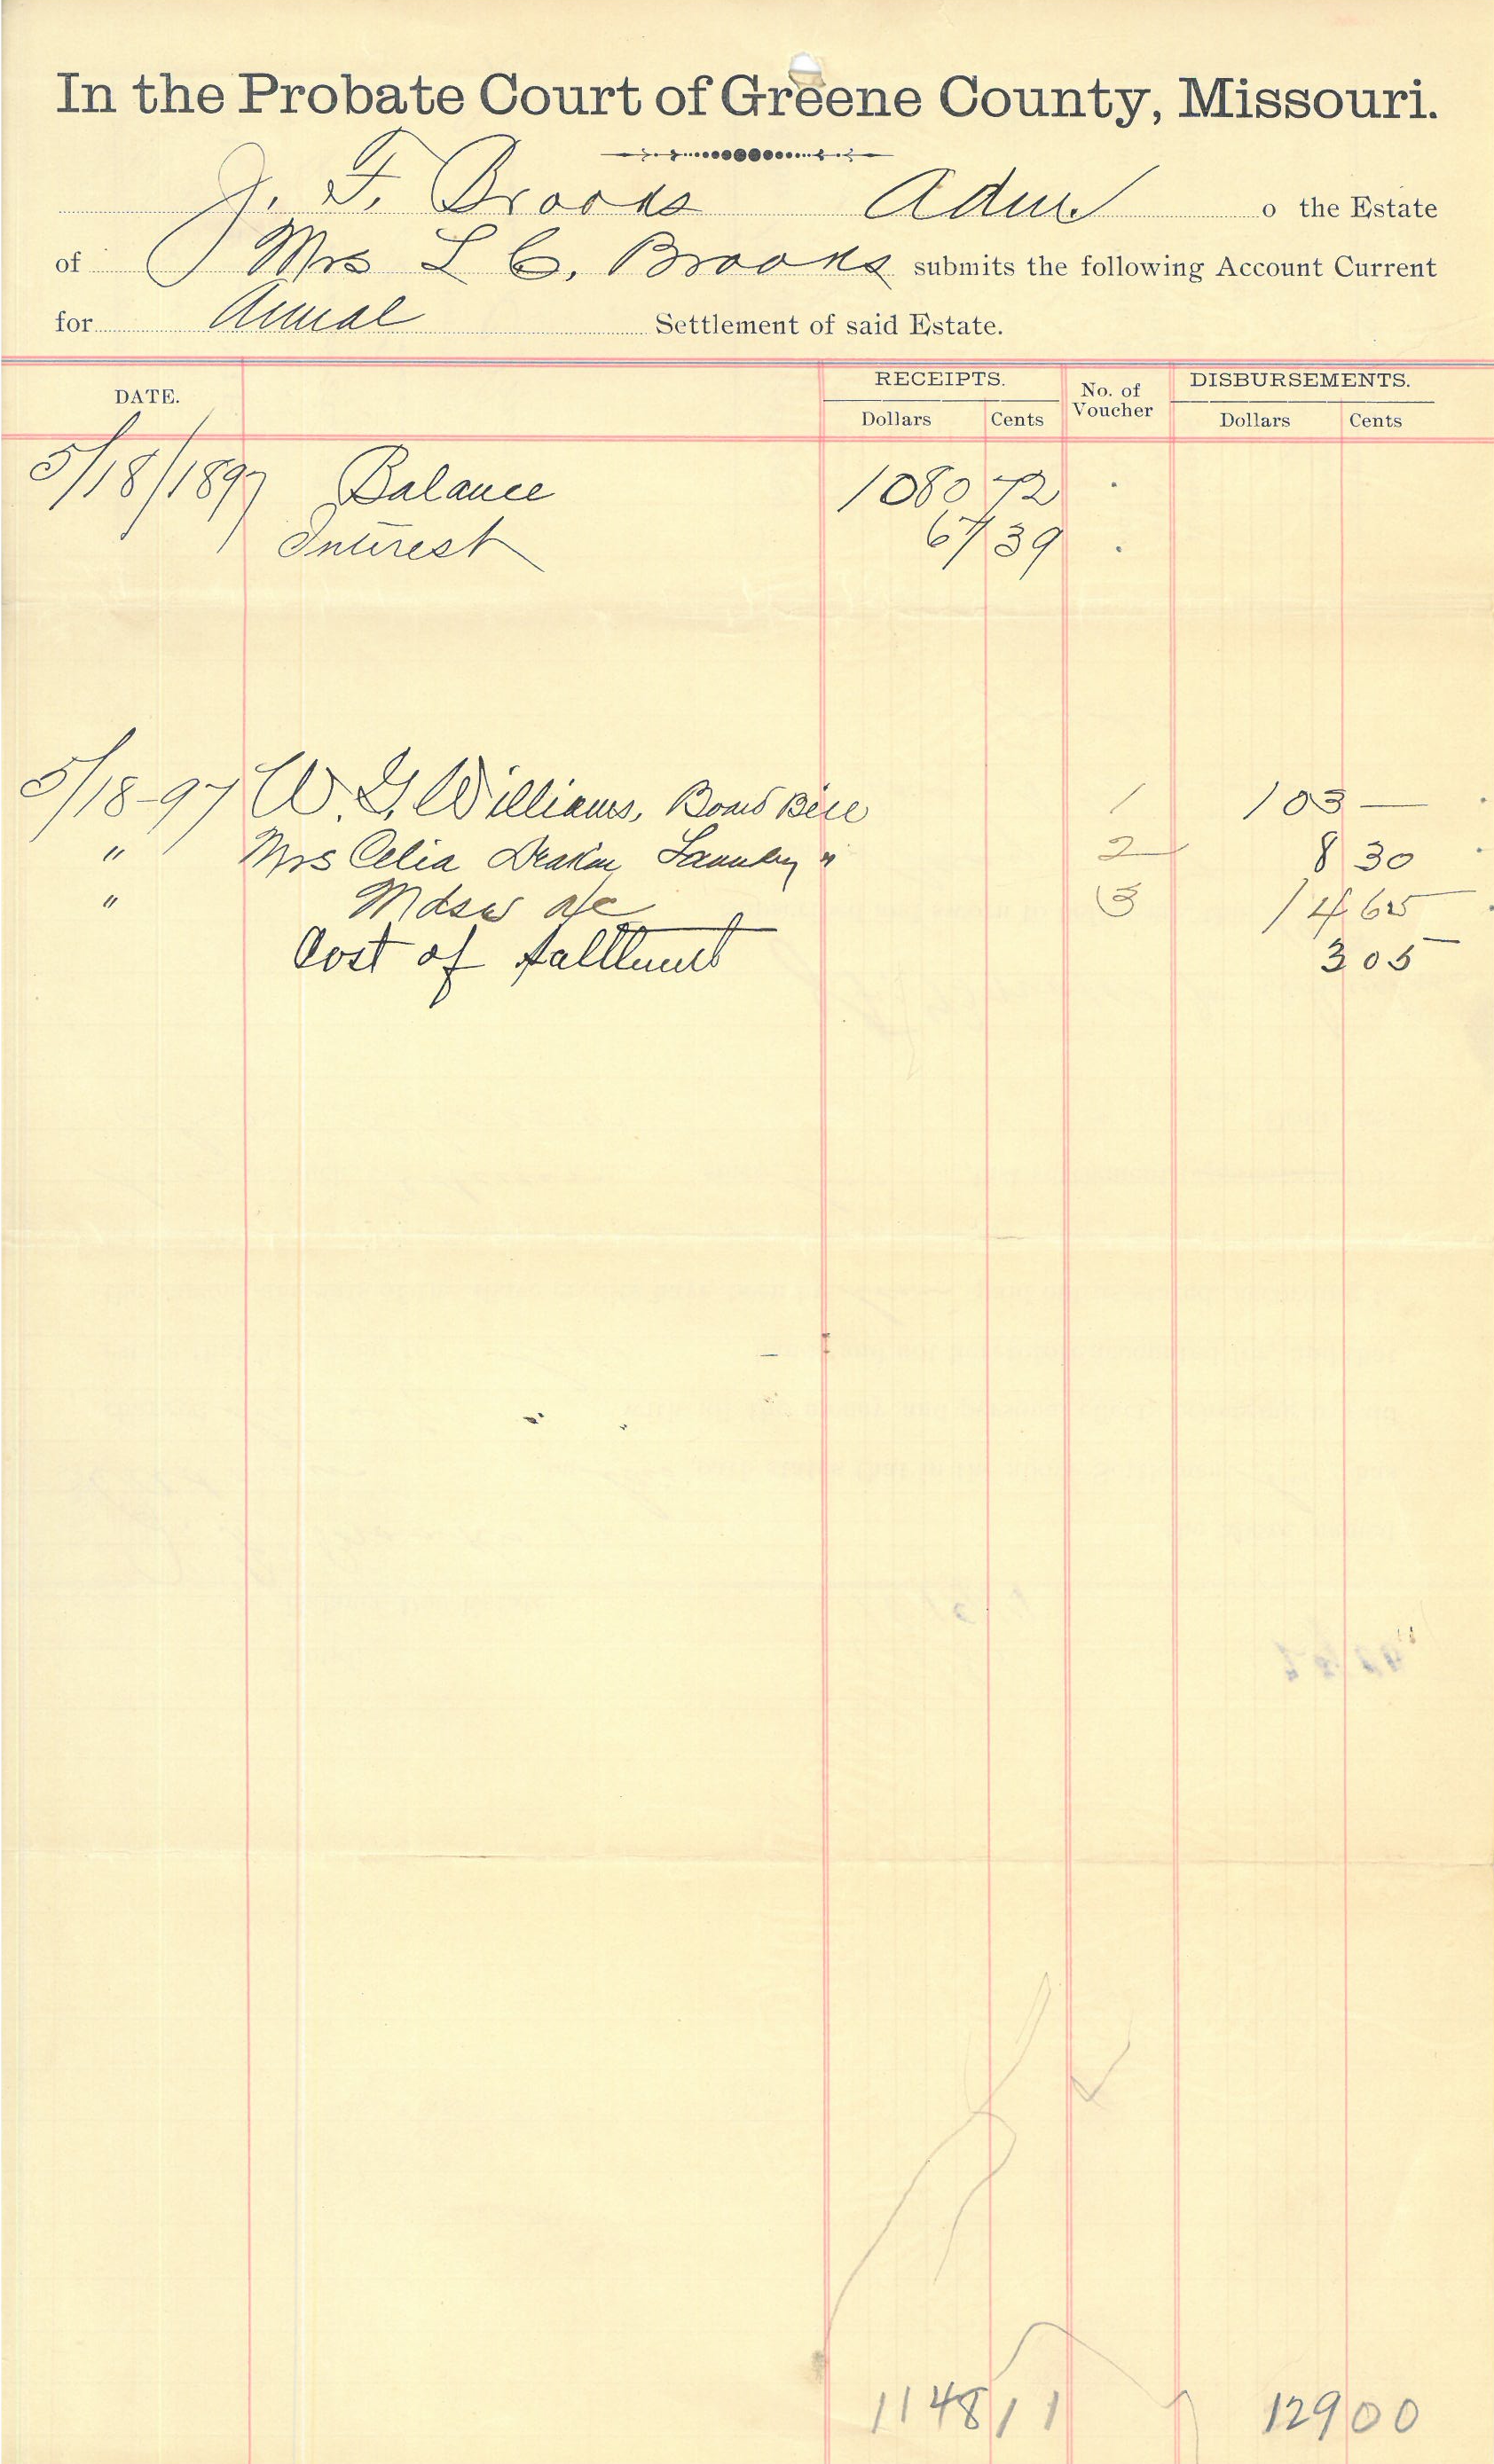 In the Probate Court of Greene County, Missouri.
J. F. Brooks Adm o the Estate
of Mrs L C. Brooks submits the following Account Current
for Annual Settlement of said Estate.
DATE. RECEIPTS. No. of Voucher DISBURSEMENTS.
Dollars Cents Dollars Cents
5/18/1897 Balance 1080 72
Interest 67 39
5/18-97 W. G. Williams, Board Bill 1 103 —
" Mrs Celia Laundry " 2 8 30
" Mdse a/c 3 14 65
Cost of 3 05
1148 11 129 00